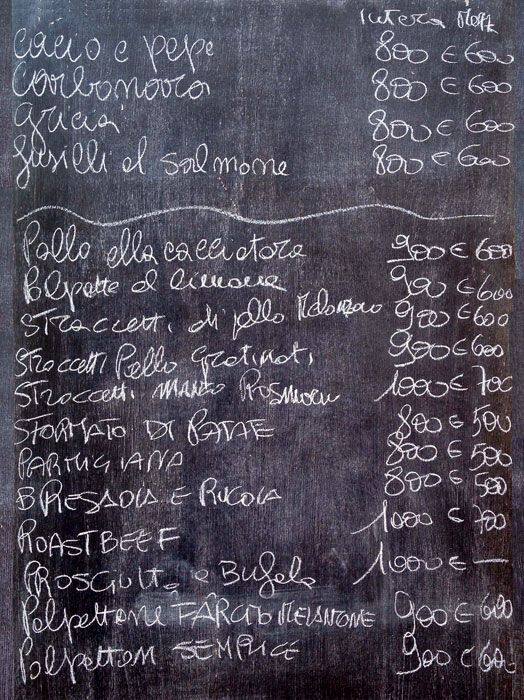 Intera Mezz
cacio e pepe 800 € 600
carbonara 800 € 600
gricia 800 € 600
fusilli al salmone 800 € 600
Pollo alla cacciatora 900 € 600
Polpette al limone 900 € 600
STRaccetti di pollo Melanzane 900 € 600
STRaccetti Pollo Gratinati 900 € 600
STRaccetti MANZO ROSMARIN 1000 € 700
SFORMATO DI PATATE 800 € 500
PARMIGIANA 800 € 500
BRESAOLA E RUCOLA 800 € 500
ROASTBEEF 1000 € 700
PROSCIUTTO e Bufala 1000 € —
Polpettone FARCITO MELANZANE 900 € 600
Polpettone SEMPLICE 900 € 600